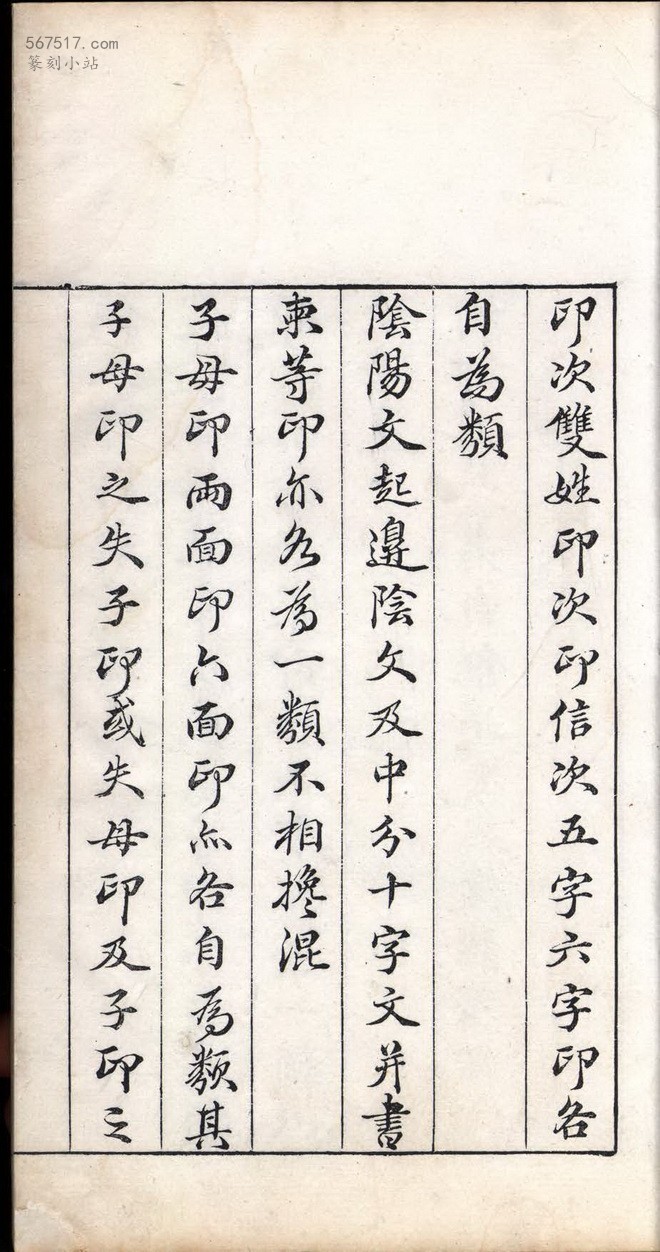 567517.com
篆刻小站
印次雙姓印次印信次五字六字印各
自為類
陰陽文起邊陰文及中分十字文并書
柬等印亦各為一類不相攙混
子母印兩面印六面印亦各自為類其
子母印之失子印或失母印及子印之